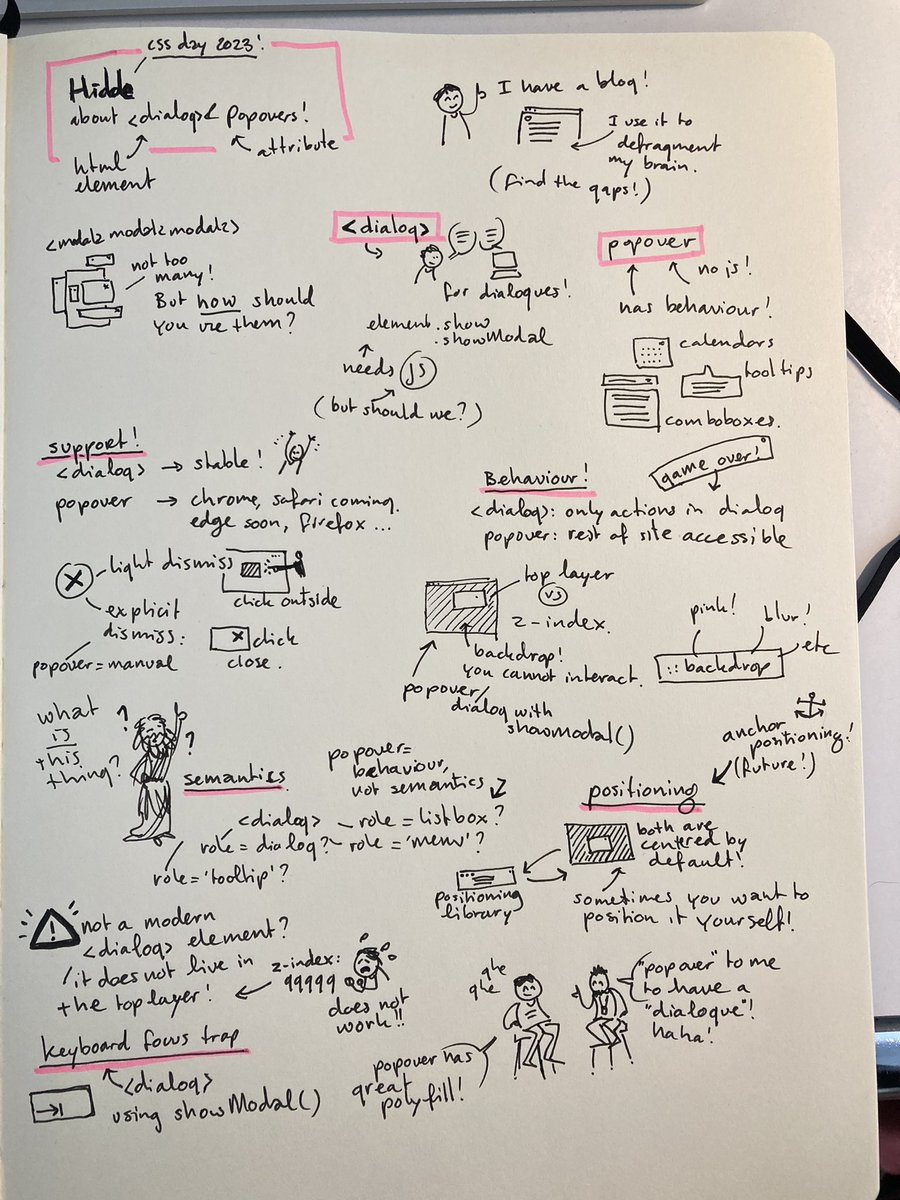 css day 2023!
Hidde
about <dialog> & Popovers!
html
element
attribute
I have a blog!
I use it to
defragment
my brain.
(find the gaps!)
<modalz modalz modalz>
not too
many!
But how should
you use them?
<dialog>
for dialogues!
element.show
.showModal
needs JS
(but should we?)
popover
no js!
has behaviour!
calendars
tooltips
comboboxes.
support!
<dialog> → stable!
popover → chrome, safari coming.
edge soon, firefox ...
light dismiss
click outside
explicit
dismiss:
popover=manual
x click
close.
game over!
Behaviour!
<dialog>: only actions in dialog
popover: rest of site accessible
top layer
vs
z-index.
backdrop!
you cannot interact.
popover/
dialog with
showmodal()
pink!
blur!
etc
::backdrop
what
is
this
thing?
?
?
semantics
popover=
behaviour,
not semantics
<dialog>
role=listbox?
role=dialog?
role='menu'?
role='tooltip'?
anchor
positioning!
(future!)
positioning
both are
centered by
default!
positioning
library
sometimes you want to
position it yourself!
not a modern
<dialog> element?
it does not live in
the top layer!
z-index:
99999
does not
work!!
keyboard focus trap
<dialog>
using showModal()
ghe
ghe
popover has
great
polyfill!
"popover" to me
to have a
"dialogue"!
haha!